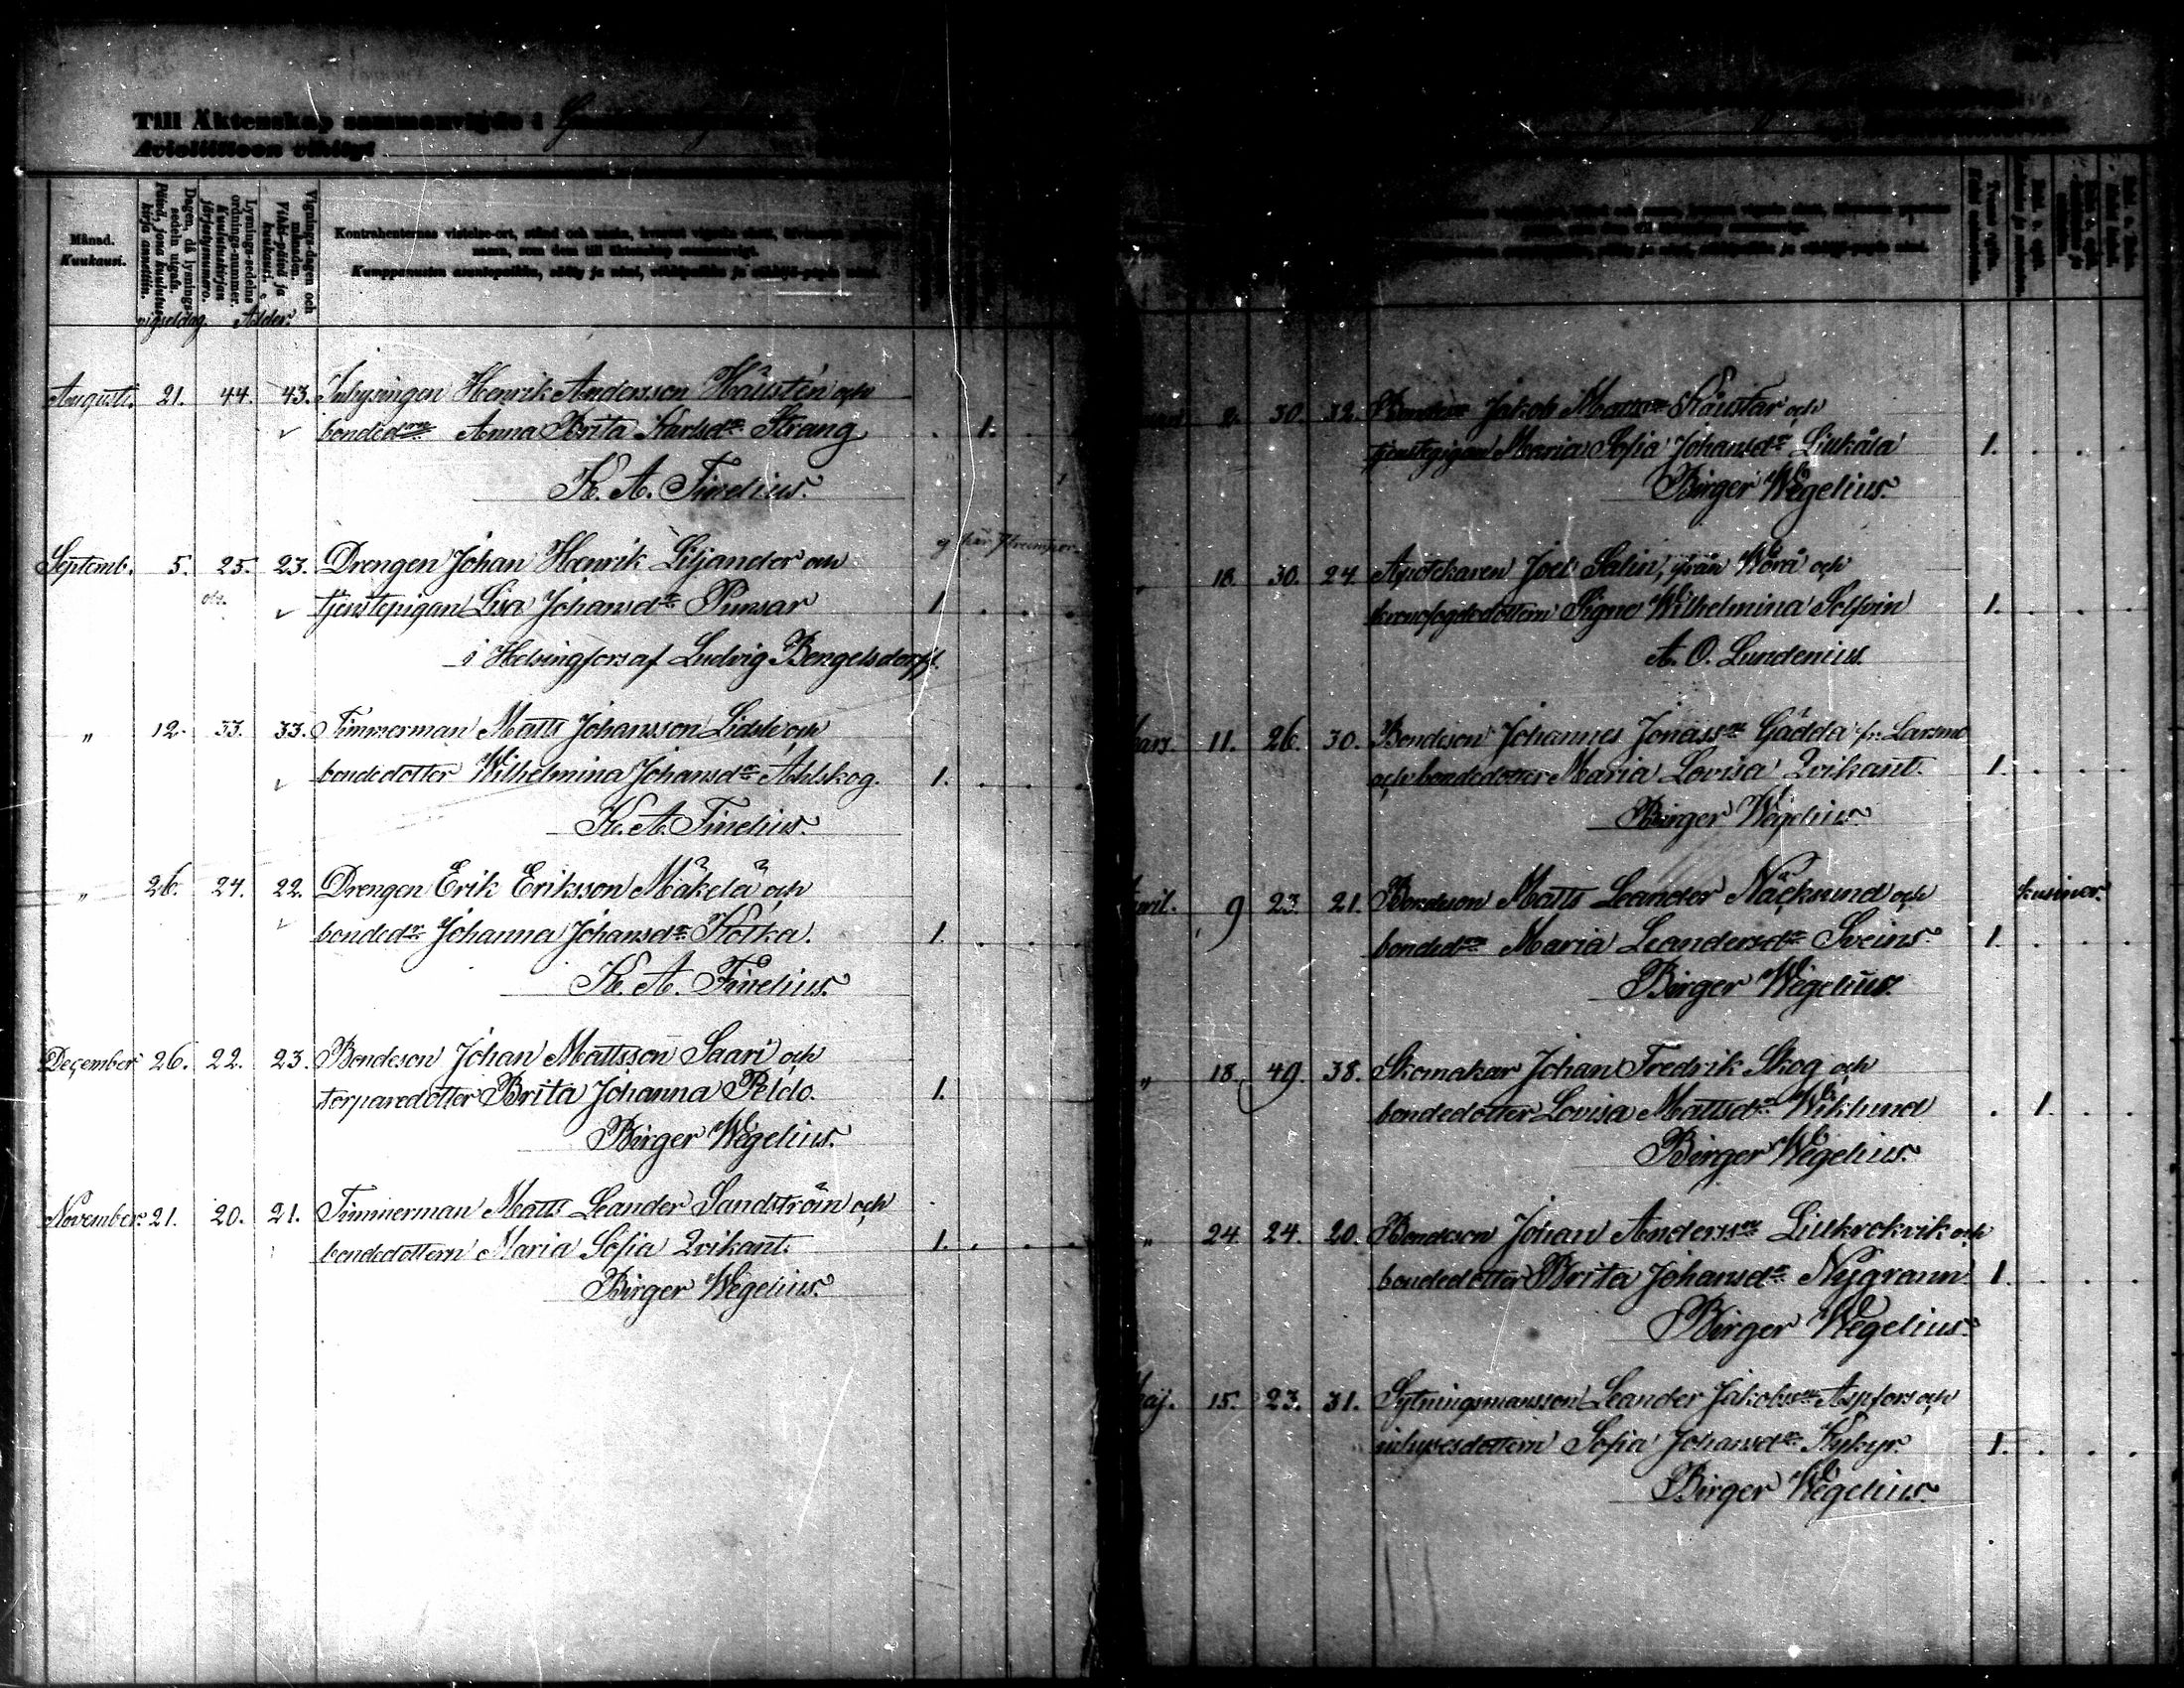 Till Äktenskap sammanvigde i
Avioliittoon vihityt
Månad.
Kuukausi.
Dagen, då lysningssedeln utgafs.
Päivä, jona kuulutuskirja annettiin.
Lysnings-sedelns ordnings-nummer.
Kuulutuskirjan järjestysnumero.
Vignings-dagen och månaden.
Vihki-päivä ja kuukausi.
Kontrahenternas vistelse-ort, stånd och namn, hvarest vigseln skett,
namn, som dem till äktenskap sammanvigt.
Kumppanusten asuntopaikka, sääty ja nimi, vihkipaikka ja vihkijä-papin nimi.
vigseldag. Ålder.
Augusti. 21. 44. 43. Inhysingen Henrik Andersson Häustén och
bondedrn Anna Brita Karlsdr Strang 1.
K. A. Finelius.
Septemb. 5. 25. 23. Drengen Johan Henrik Liljander och
tjenstepigan Lisa Johansdr Punsar 1.
i Helsingfors af Ludvig Bengelsdorff.
" 12. 33. 33. Timmerman Matts Johansson Lidsle och
bondedotter Wilhelmina Johansdr Ahlskog. 1.
K. A. Finelius.
" 26. 24. 22. Drengen Erik Eriksson Mäkelä och
bondedr Johanna Johansdr Kotka. 1.
K. A. Finelius.
December 26. 22. 23. Bondeson Johan Mattsson Saari och
torparedotter Brita Johanna Peldo. 1.
Birger Wegelius.
November 21. 20. 21. Timmerman Matts Leander Sandström och
bondedottern Maria Sofia Qvikant. 1.
Birger Wegelius.
2. 30. 32. Jakob Mattsn Käustar och
tjenstepigan Maria Sofia Johansdr Liukala 1.
Birger Wegelius.
" 18. 30. 24. Apotekaren Joel Salin, från Wörå och
kronofogdedottern Signe Wilhelmina Solfvin 1.
A. O. Lundenius.
Mars 11. 26. 30. Bondeson Johannes Jonassn Gädda fr. Larsmo
och bondedotter Maria Lovisa Qvikant. 1.
Birger Wegelius.
April. 9 23. 21. Bondeson Matts Leander Näcksund och kusiner.
bondedrn Maria Leandersdr Sveins. 1.
Birger Wegelius.
" 18. 49. 38. Skomakar Johan Fredrik Skog och
bondedotter Lovisa Mattsdr Wiklund 1.
Birger Wegelius.
" 24. 24. 20. Bondeson Johan Anderssn Lillkrokvik och
bondedotter Brita Johansdr Nygrann. 1.
Birger Wegelius.
Maj. 15. 23. 31. Sytningsmansson Leander Jakobsn Aspfors och
inhysesdottern Sofia Johansdr Kykyr. 1.
Birger Wegelius.